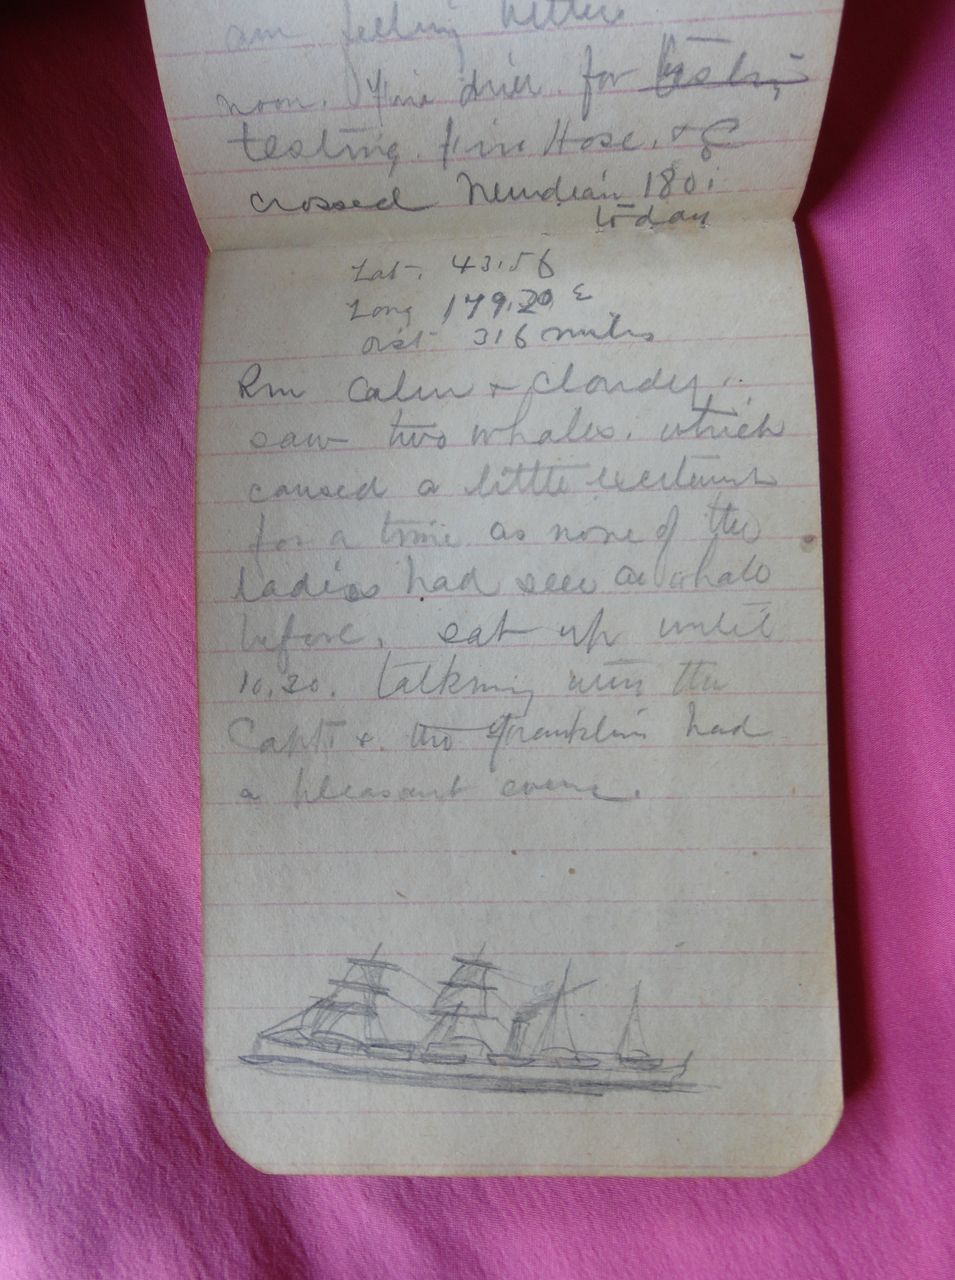 am feeling better
noon. Fire drill. for
testing. Fire Hose. & c
crossed Meridian 180;
to day
Lat. 43.56
Long 179.20 E
Dist 316 miles
Pm Calm & Cloudy..
saw two whales. which
caused a little excitement
for a time as none of the
ladies had seen a whale
before. sat up until
10,20. talking with the
Capt & two Franklins had
a pleasant evening.